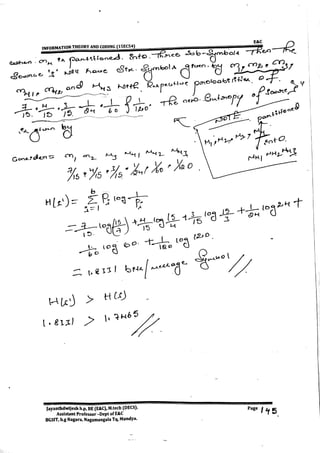 E&C
INFORMATION THEORY AND CODING (15EC54)
m4 is partitioned into three sub-symbols then the
source 's' will have six symbols given by m1, m2, m3,
m41, m42 and m43 with respective probabilities of
7/15, 4/15, 3/15, 1/24, 1/60, 1/120. The new Entropy of source
is given by
NOTE:
M1, M2, M3, M4 partitioned
into
M41 M42 M43
Consider:- m1 m2 m3 m41 m42 m43
7/15 4/15 3/15 1/24 1/60 1/120
H(s') = 6 Σ i=1 Pi log 1/Pi
= 7/15 log (15/7) + 4/15 log 15/4 + 3/15 log 15/3 + 1/24 log 24 +
1/60 log 60 + 1/120 log 120
= 1.8331 bits/message symbol
H(s') > H(s)
1.8331 > 1.7465
Jayanthdwijesh h.p, BE (E&C), M.tech (DECS).
Assistant Professor - Dept of E&C
BGSIT, b.g Nagara, Nagamangala Tq, Mandya.
Page 145